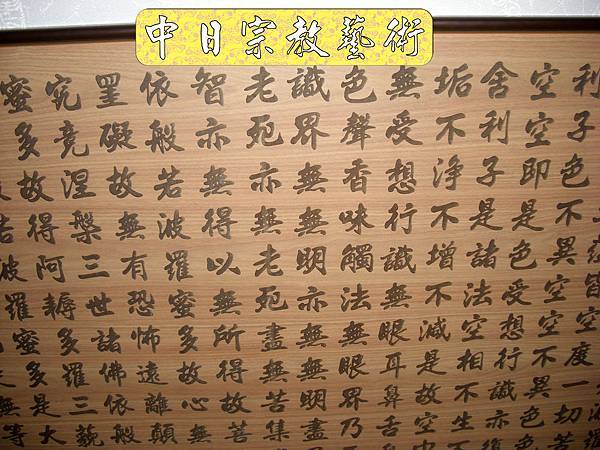 中日宗教藝術
蘊皆空度一切苦
利子色不異空空不異色
空空即是色受想行識亦復
舍利子是諸法空相不生不
垢不淨不增不減是故空中
無受想行識無眼耳鼻舌
色聲香味觸法無眼界乃
識界無無明亦無無明盡
老死亦無老死盡無苦集
智亦無得以無所得故菩
依般若波羅蜜多故心無
罣礙故無有恐怖遠離顛
究竟涅槃三世諸佛依般
蜜多故得阿耨多羅三藐
若波羅蜜多是大